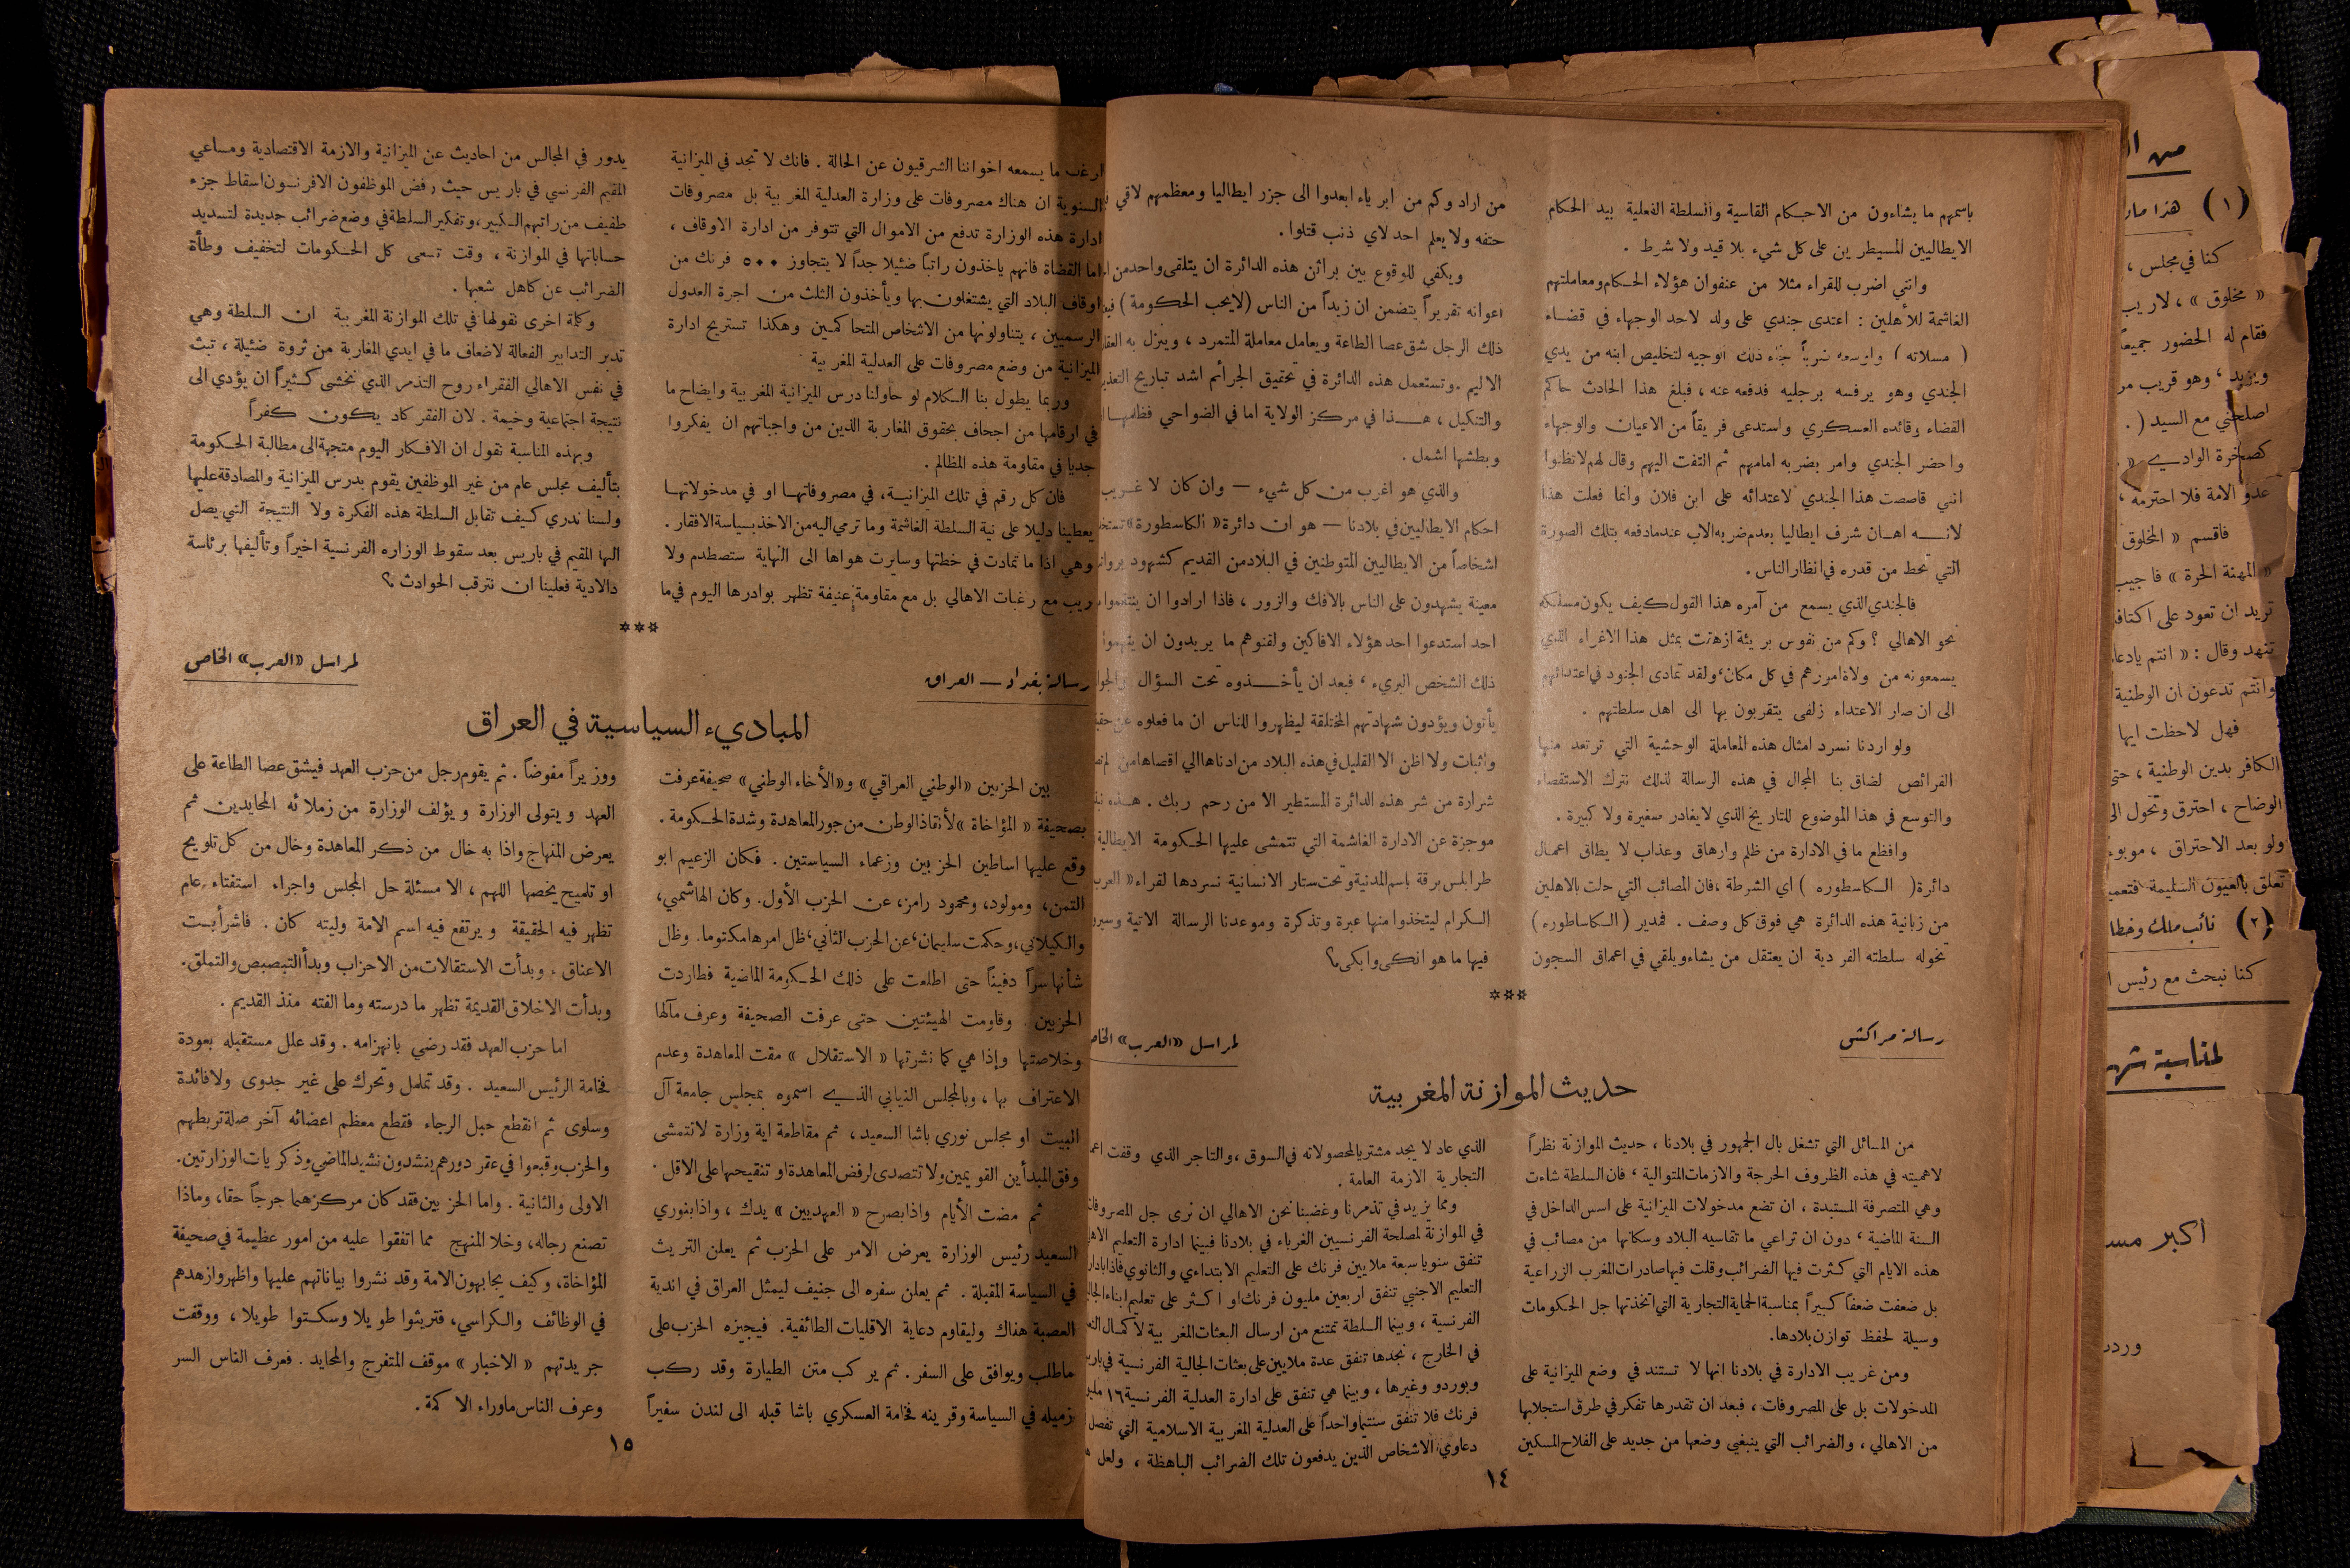 باسمهم ما يشاءون من الاحكام القاسية والسلطة الفعلية بيد الحكام
الايطاليين المسيطرين على كل شيء بلا قيد ولا شرط .
وانني اضرب للقراء مثلا من عنفوان هؤلاء الحكام ومعاملتهم
الغاشمة للأهلين : اعتدى جندي على ولد لاحد الوجهاء في قضاء
( مسلاته ) واوسعه ضرباً فجاء ذلك الوجيه لتخليص ابنه من يدي
الجندي وهو يرفسه برجليه فدفعه عنه ، فبلغ هذا الحادث حاكم
القضاء وقائده العسكري واستدعى فريقاً من الاعيان والوجهاء
واحضر الجندي وامر بضربه امامهم ثم التفت اليهم وقال لهم لا تظنوا
انني قاصصت هذا الجندي لاعتدائه على ابن فلان وانما فعلت هذا
لانه اهان شرف ايطاليا بعدم ضربه الاب عندما دفعه بتلك الصورة
التي تحط من قدره في انظار الناس .
فالجندي الذي يسمع من آمره هذا القول كيف يكون مسلكه
نحو الاهالي ؟ وكم من نفوس بريئة ازهقت بمثل هذا الاغراء الذي
يسمعونه من ولاة امورهم في كل مكان ، ولقد تمادى الجنود في اعتدائهم
الى ان صار الاعتداء زلفى يتقربون بها الى اهل سلطتهم .
ولو اردنا نسرد امثال هذه المعاملة الوحشية التي ترتعد منها
الفرائص لضاق بنا المجال في هذه الرسالة لذلك نترك الاستقصاء
والتوسع في هذا الموضوع للتاريخ الذي لا يغادر صغيرة ولا كبيرة .
وافظع ما في الادارة من ظلم وارهاق وعذاب لا يطاق اعمال
دائرة ( الكاسطوره ) اي الشرطة ، فان المصائب التي حلت بالاهلين
من زبانية هذه الدائرة هي فوق كل وصف . فمدير ( الكاساطوره )
تخوله سلطته الفردية ان يعتقل من يشاء ويلقي في اعماق السجون
من اراد وكم من ابرياء ابعدوا الى جزر ايطاليا ومعظمهم لاقي
حتفه ولا يعلم احد لاي ذنب قتلوا .
ويكفي للوقوع بين براثن هذه الدائرة ان يتلقى واحد من
اعوانه تقريراً يتضمن ان زيداً من الناس ( لا يحب الحكومة )
ذلك الرجل شق عصا الطاعة ويعامل معاملة المتمرد ، وينزل به
الاليم . وتستعمل هذه الدائرة في تحقيق الجرائم اشد تباريح
والتنكيل ، هذا في مركز الولاية اما في الضواحي فظلمها
وبطشها اشمل .
والذي هو اغرب من كل شيء — وان كان لا غريب
احكام الايطاليين في بلادنا — هو ان دائرة « الكاسطورة »
اشخاصاً من الايطاليين المتوطنين في البلاد من القديم كشهود
معينة يشهدون على الناس بالافك والزور ، فاذا ارادوا ان ينتقموا
احد استدعوا احد هؤلاء الافاكين ولقنوهم ما يريدون ان يتهموا
ذلك الشخص البريء ، فبعد ان يأخذوه تحت السؤال
يأتون ويؤدون شهادتهم المختلقة ليظهروا للناس ان ما فعلوه عن
واثبات ولا اظن الا القليل في هذه البلاد من ادناها الى اقصاها من
شرارة من شر هذه الدائرة المستطير الا من رحم ربك . هذه
موجزة عن الادارة الغاشمة التي تتمشى عليها الحكومة الايطالية
طرابلس برقة باسم المدنية وتحت ستار الانسانية نسردها لقراء « العرب
الكرام ليتخذوا منها عبرة وتذكرة وموعدنا الرسالة الاتية
فيها ما هو انكى وابكى ؟
***
رسالة مراكش
لمراسل «العرب»
حديث الموازنة المغربية
من المسائل التي تشغل بال الجمهور في بلادنا ، حديث الموازنة نظراً
لاهميته في هذه الظروف الحرجة والازمات المتوالية ، فان السلطة شاءت
وهي المتصرفة المستبدة ، ان تضع مدخولات الميزانية على اسس الداخل في
السنة الماضية ، دون ان تراعي ما تقاسيه البلاد وسكانها من مصائب في
هذه الايام التي كثرت فيها الضرائب وقلت فيها صادرات المغرب الزراعية
بل ضعفت ضعفاً كبيراً بمناسبة الحماية التجارية التي اتخذتها جل الحكومات
وسيلة لحفظ توازن بلادها .
ومن غريب الادارة في بلادنا انها لا تستند في وضع الميزانية على
المدخولات بل على المصروفات ، فبعد ان تقدرها تفكر في طرق استجلابها
من الاهالي ، والضرائب التي ينبغي وضعها من جديد على الفلاح المسكين
الذي عاد لا يجد مشتريا لمحصولاته في السوق ، والتاجر الذي وقفت
التجارية الازمة العامة .
ومما يزيد في تذمرنا وغضبنا نحن الاهالي ان نرى جل
في الموازنة لمصلحة الفرنسيين الغرباء في بلادنا فبينما ادارة التعليم
تنفق سنويا سبعة ملايين فرنك على التعليم الابتدائي والثانوي
التعليم الاجنبي تنفق اربعين مليون فرنك او اكثر على تعليم ابناء
الفرنسية ، وبينما السلطة تمتنع من ارسال البعثات المغربية لاكمال
في الخارج ، نجدها تنفق عدة ملايين على بعثات الجالية الفرنسية
وبوردو وغيرها ، وبينما هي تنفق على ادارة العدلية الفرنسية ١٦
فرنك فلا تنفق سنتيما واحداً على العدلية المغربية الاسلامية التي تفصل
دعاوي الاشخاص الذين يدفعون تلك الضرائب الباهظة ، ولعل
١٤
ما يسمعه اخواننا الشرقيون عن الحالة . فانك لا تجد في الميزانية
السنوية ان هناك مصروفات على وزارة العدلية المغربية بل مصروفات
ادارة هذه الوزارة تدفع من الاموال التي تتوفر من ادارة الاوقاف ،
اما القضاة فانهم ياخذون راتباً ضئيلا جداً لا يتجاوز ٥٠٠ فرنك من
اوقاف البلاد التي يشتغلون بها ويأخذون الثلث من اجرة العدول
الرسميين ، يتناولونها من الاشخاص المتحاكمين وهكذا تستريح ادارة
الميزانية من وضع مصروفات على العدلية المغربية
وربما يطول بنا الكلام لو حاولنا درس الميزانية المغربية وايضاح ما
في ارقامها من اجحاف بحقوق المغاربة الذين من واجباتهم ان يفكروا
جديا في مقاومة هذه المظالم .
فان كل رقم في تلك الميزانية ، في مصروفاتها او في مدخولاتها
يعطينا دليلا على نية السلطة الغاشمة وما ترمي اليه من الاخذ بسياسة الافقار .
وهي اذا ما تمادت في خطتها وسايرت هواها الى النهاية ستصطدم ولا
ريب مع رغبات الاهالي بل مع مقاومة عنيفة تظهر بوادرها اليوم في ما
يدور في المجالس من احاديث عن الميزانية والازمة الاقتصادية ومساعي
المقيم الفرنسي في باريس حيث رفض الموظفون الافرنسون اسقاط جزء
طفيف من راتبهم الكبير ، وتفكير السلطة في وضع ضرائب جديدة لتسديد
حساباتها في الموازنة ، وقت تسعى كل الحكومات لتخفيف وطأة
الضرائب عن كاهل شعبها .
وكلمة اخرى نقولها في تلك الموازنة المغربية ان السلطة وهي
تدبر التدابير الفعالة لاضعاف ما في ايدي المغاربة من ثروة ضئيلة ، تبث
في نفس الاهالي الفقراء روح التذمر الذي نخشى كثيراً ان يؤدي الى
نتيجة اجتماعية وخيمة . لان الفقر كاد يكون كفراً
وبهذه المناسبة نقول ان الافكار اليوم متجهة الى مطالبة الحكومة
بتأليف مجلس عام من غير الموظفين يقوم بدرس الميزانية والمصادقة عليها
ولسنا ندري كيف تقابل السلطة هذه الفكرة ولا النتيجة التي يصل
اليها المقيم في باريس بعد سقوط الوزاره الفرنسية اخيراً وتأليفها برئاسة
دالادية فعلينا ان نترقب الحوادث ؟
***
رسالة بغداد — العراق
لمراسل «العرب» الخاص
المباديء السياسية في العراق
بين الحزبين «الوطني العراقي» و«الأخاء الوطني» صحيفة عرفت
بصحيفة « المؤاخاة » لأنقاذ الوطن من جور المعاهدة وشدة الحكومة .
وقع عليها اساطين الحزبين وزعماء السياستين . فكان الزعيم ابو
التمن، ومولود، ومحمود رامز، عن الحزب الأول. وكان الهاشمي،
والكيلاني، وحكمت سليمان ، عن الحزب الثاني ، ظل امرها مكتوما. وظل
شأنها سراً دفيناً حتى اطلعت على ذلك الحكومة الماضية فطاردت
الحزبين . وقاومت الهيئتين حتى عرفت الصحيفة وعرف مآلها
وخلاصتها وإذا هي كما نشرتها « الاستقلال » مقت المعاهدة وعدم
الاعتراف بها ، وبالمجلس النيابي الذي اسموه بمجلس جامعة آل
البيت او مجلس نوري باشا السعيد ، ثم مقاطعة اية وزارة لا تتمشى
وفق المبدأين القويمين ولا تتصدى لرفض المعاهدة او تنقيحها على الاقل .
ثم مضت الأيام واذا بصرح « العهديين » يدك ، واذا بنوري
السعيد رئيس الوزارة يعرض الامر على الحزب ثم يعلن التريث
في السياسة المقبلة . ثم يعلن سفره الى جنيف ليمثل العراق في اندية
العصبة هناك وليقاوم دعاية الاقليات الطائفية. فيجيزه الحزب على
ماطلب ويوافق على السفر . ثم يركب متن الطيارة وقد ركب
زميله في السياسة وقرينه فخامة العسكري باشا قبله الى لندن سفيراً
ووزيراً مفوضاً . ثم يقوم رجل من حزب العهد فيشق عصا الطاعة على
العهد ويتولى الوزارة ويؤلف الوزارة من زملائه المحايدين ثم
يعرض المنهاج واذا به خال من ذكر المعاهدة وخال من كل تلويح
او تلميح يخصها اللهم ، الا مسئلة حل المجلس واجراء استفتاء عام
تظهر فيه الحقيقة ويرتفع فيه اسم الامة وليته كان . فاشرأبت
الاعناق ، وبدأت الاستقالات من الاحزاب وبدأ التبصبص والتملق.
وبدأت الاخلاق القديمة تظهر ما درسته وما الفته منذ القديم .
اما حزب العهد فقد رضي بانهزامه . وقد علل مستقبله بعودة
فخامة الرئيس السعيد . وقد تململ وتحرك على غير جدوى ولا فائدة
وسلوى ثم انقطع حبل الرجاء فقطع معظم اعضائه آخر صلة تربطهم
والحزب وقبعوا في عقر دورهم ينشدون نشيد الماضي وذكريات الوزارتين.
الاولى والثانية . واما الحزبين فقد كان مركزهما حرجاً حقا، وماذا
تصنع رجاله ، وخلا المنهج مما اتفقوا عليه من امور عظيمة في صحيفة
المؤاخاة، وكيف يجابهون الامة وقد نشروا بياناتهم عليها واظهروا زهدهم
في الوظائف والكراسي، فتريثوا طويلا وسكتوا طويلا ، ووقفت
جريدتهم « الاخبار » موقف المتفرج والمحايد . فعرف الناس السر
وعرف الناس ماوراء الاكمة .
١٥
(١) هذا
كنا في مجلس ،
« مخلوق » ، لا ريب
فقام له الحضور جميعاً
ويزيد ، وهو قريب
اصلحني مع السيد ( .
كصخرة الوادي »
عدو الامة فلا احترمه ،
فاقسم « المخلوق
« المهنة الحرة » فاجيب
تريد ان تعود على
تنهد وقال : « انتم
وانتم تدعون ان الوطنية
فهل لاحظت ايها
الكافر بدين الوطنية ، حتى
الوضاح ، احترق وتحول
ولو بعد الاحتراق ،
تعلق بالعيون السليمة
(٢) نائب ملك
كنا نبحث مع رئيس
لمناسبة
اكبر